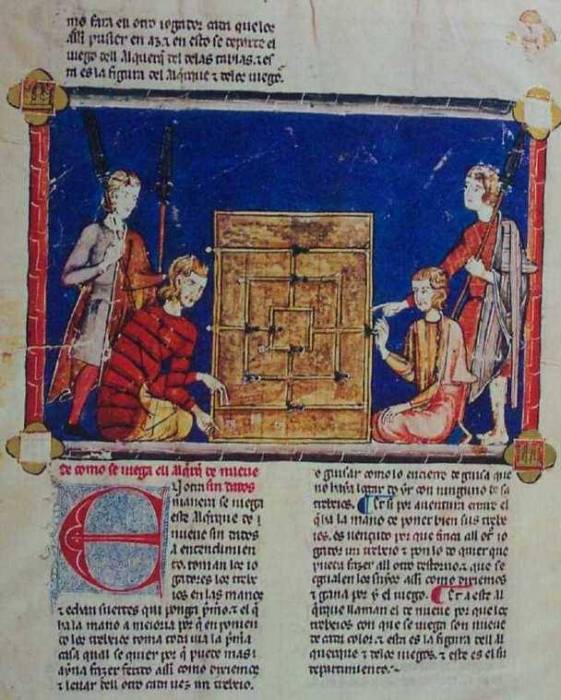 mo fara en otro iogador cada que los
assi pusier en az. z en esto se departe el
iuego del Alquerq̃ del delas tablas. z es
ta es la figura del Alq̃rque z delos iuegos.
De como se iuega ell alq̃rq̃ de nueue
Otra sin dados
manera se iuega
este Alquerque de
nueue sin dados
a entendimien
to. toman los io
gadores los trebe
ios en las manos
z echan suertes qui ionga p̃mo. z el q̃
ha la mano a meioria por q̃ en ponien
do los trebeios toma toda uia la p̃mia
casa qual se quier por q̃ puede mas
ayna fazer fecho assi como dixiemos
z leuar dell otro cada uez un trebeio.
o guisar como lo encierre de guisa que
no haya logar do yr con ninguno de sos
trebeios. Et si por auentura errare el
q̃ ha la mano de poner bien sus trebe
ios. es uençudo por que
gador un trebeio z pon lo do quier que
pueda fazer all otro destoruo. z que se
egualen los suyos assi como dixiemos
z gana por y el iuego. Et a este al
q̃rque llaman el de nueue por que los
trebeios con que se iuega son nueue
de cada color. z esta es la figura dell al
querque z delos iuegos. z este es el su
departimiento.